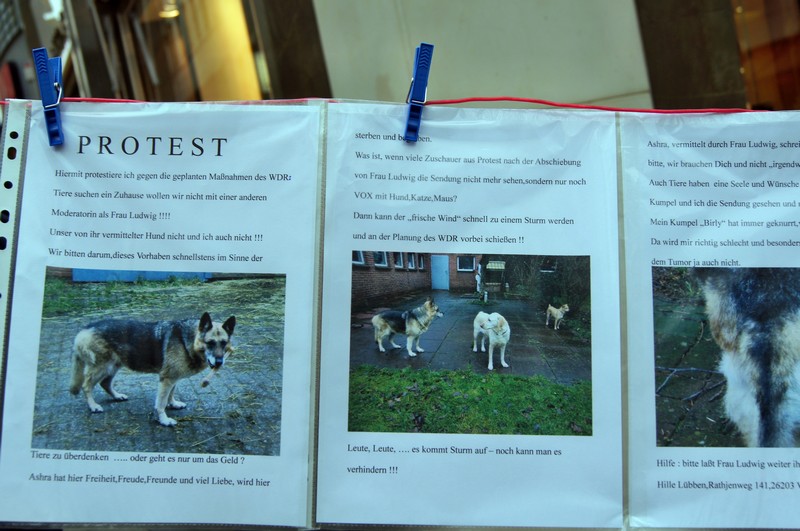 PROTEST
Hiermit protestiere ich gegen die geplanten Maßnahmen des WDR:
Tiere suchen ein Zuhause wollen wir nicht mit einer anderen
Moderatorin als Frau Ludwig !!!!
Unser von ihr vermittelter Hund nicht und ich auch nicht !!!
Wir bitten darum,dieses Vorhaben schnellstens im Sinne der
Tiere zu überdenken ….. oder geht es nur um das Geld ?
Ashra hat hier Freiheit,Freude,Freunde und viel Liebe, wird hier
sterben und
Was ist, wenn viele Zuschauer aus Protest nach der Abschiebung
von Frau Ludwig die Sendung nicht mehr sehen,sondern nur noch
VOX mit Hund,Katze,Maus?
Dann kann der „frische Wind“ schnell zu einem Sturm werden
und an der Planung des WDR vorbei schießen !!
Leute, Leute, …. es kommt Sturm auf – noch kann man es
verhindern !!!
Ashra, vermittelt durch Frau Ludwig,
bitte, wir brauchen Dich und nicht
Auch Tiere haben eine Seele und Wünsche
Kumpel und ich die Sendung gesehen und
Mein Kumpel „Birly“ hat immer geknurrt,
Da wird mir richtig schlecht und
dem Tumor ja auch nicht.
Hilfe : bitte laßt Frau Ludwig weiter
Hille Lübben,Rathjenweg 141,26203